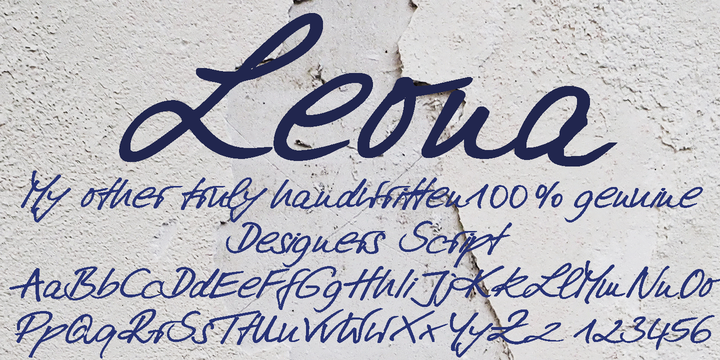 Leona
My other truly handwritten 100% genuine
Designers Script
AaBbCcDdEeFfGgHhIiJjKkLlMmNnOo
PpQqRrSsTtUuVvWwXxYyZz 123456